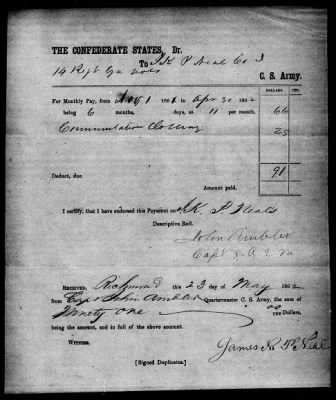 THE CONFEDERATE STATES, Dr.
To J.K. P Neal Co I
14 Regt Ga Vols
C. S. Army.
DOLLARS. CTS.
For Monthly Pay, from Nov 1 1861 to Apr 30 1862 66
being 6 months, days, at 11 per month.
Commutation Clothing 25
91
Deduct, due
Amount paid.
I certify, that I have endorsed this Payment on J.K. P Neals
Descriptive Roll.
John Ambler
Capt & A Q M
RECEIVED, Richmond this 23 day of May 1862
from Capt John Ambler Quartermaster C. S. Army, the sum of
Ninety one 00/100 Dollars,
being the amount, and in full of the above account.
WITNESS.
James K. P Neal
[Signed Duplicates.]